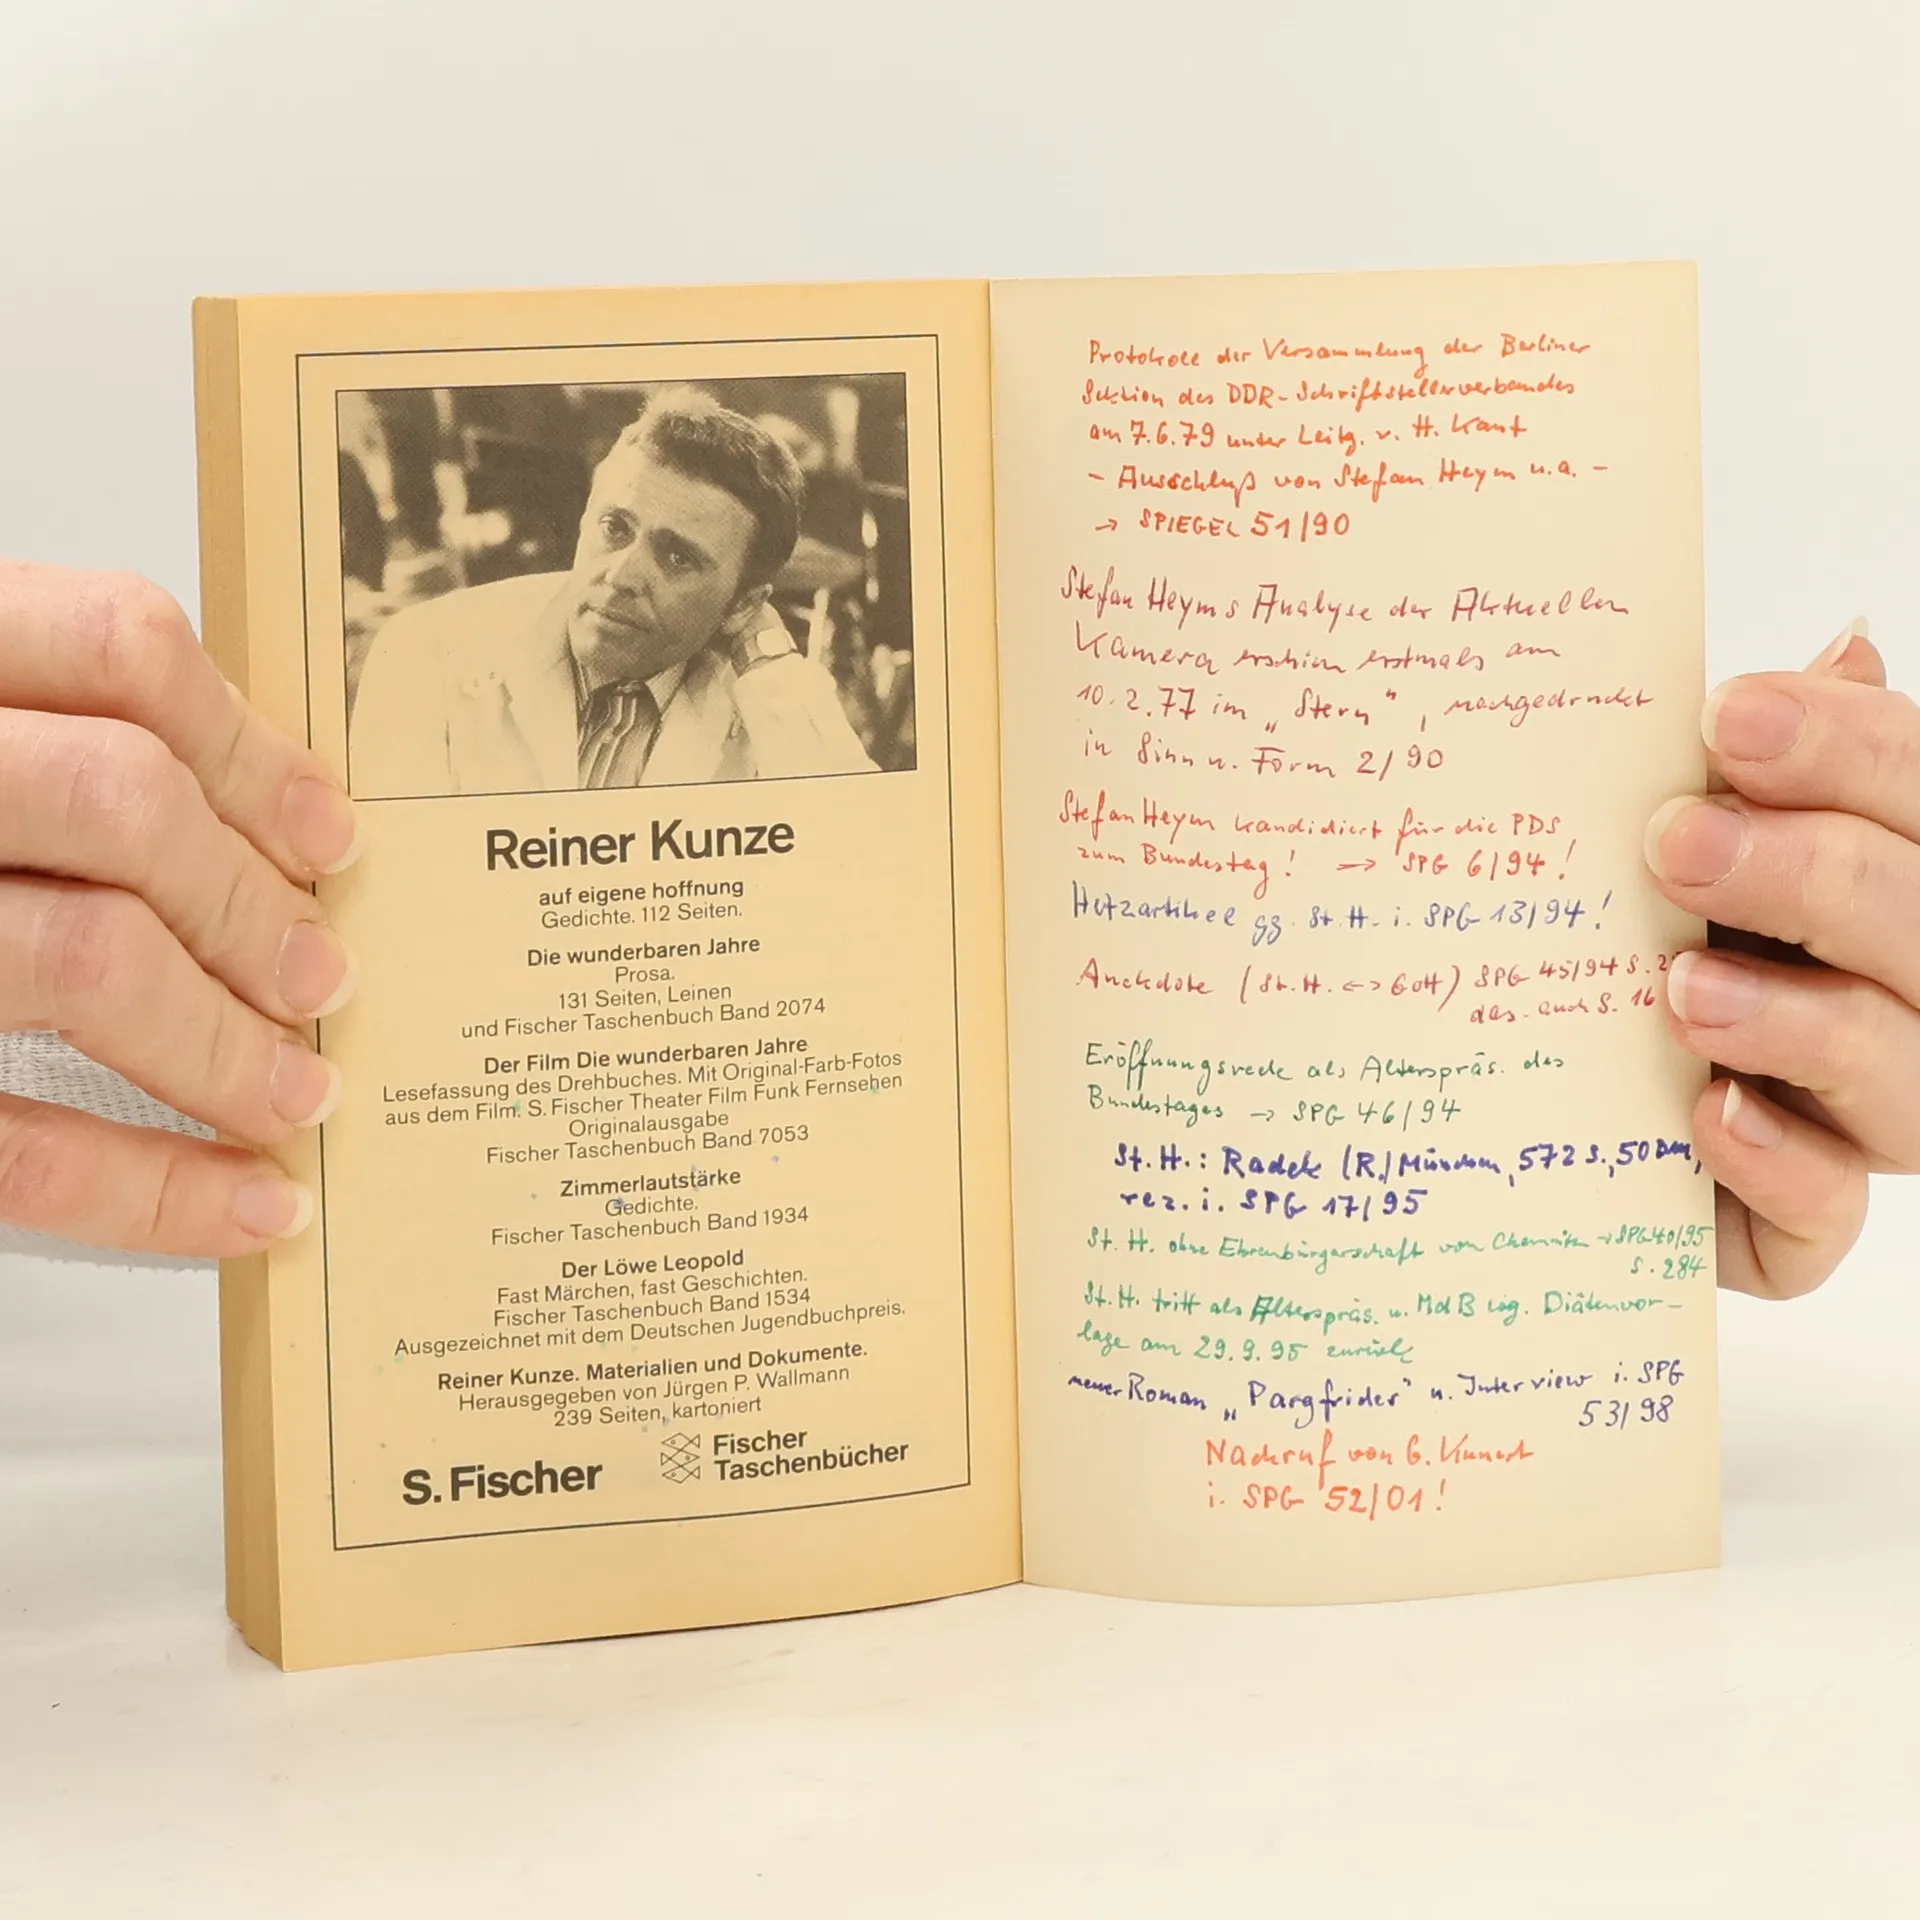 Reiner Kunze
auf eigene hoffnung
Gedichte. 112 Seiten.
Die wunderbaren Jahre
Prosa.
131 Seiten, Leinen
und Fischer Taschenbuch Band 2074
Der Film Die wunderbaren Jahre
Lesefassung des Drehbuches. Mit Original-Farb-Fotos
aus dem Film. S. Fischer Theater Film Funk Fernsehen
Originalausgabe
Fischer Taschenbuch Band 7053
Zimmerlautstärke
Gedichte.
Fischer Taschenbuch Band 1934
Der Löwe Leopold
Fast Märchen, fast Geschichten.
Fischer Taschenbuch Band 1534
Ausgezeichnet mit dem Deutschen Jugendbuchpreis.
Reiner Kunze. Materialien und Dokumente.
Herausgegeben von Jürgen P. Wallmann
239 Seiten, kartoniert
S. Fischer
Fischer
Taschenbücher
Protokolle der Versammlung der Berliner
Sektion des DDR-Schriftstellerverbandes
am 7.6.79 unter Leitg. v. H. Kant
- Ausschluß von Stefan Heym u.a. -
→ SPIEGEL 51/90
Stefan Heyms Analyse der Aktuellen
Kamera erschien erstmals am
10.2.77 im „Stern", nachgedruckt
in Sinn u. Form 2/90
Stefan Heym kandidiert für die PDS
zum Bundestag! → SPG 6/94!
Hetzartikel gg. St. H. i. SPG 13/94!
Anekdote (St. H. <-> GoH) SPG 45/94 S.
das. auch S. 16
Eröffnungsrede als Alterspräs. des
Bundestages → SPG 46/94
St. H.: Radek (R.) München, 572 S., 50 DM,
rez. i. SPG 17/95
St. H. ohne Ehrenbürgerschaft von Chemnitz → SPG 40/95
S. 284
St. H. tritt als Alterspräs. u. MdB wg. Diätenvor-
lage am 29.9.95 zurück
neuer Roman „Pargfrider" u. Interview i. SPG
53/98
Nachruf von G. Kunert
i. SPG 52/01!